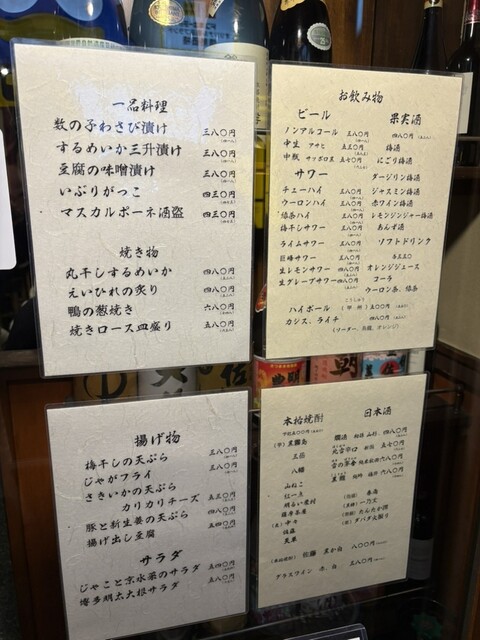 一品料理
数の子わさび漬け 三八〇円
するめいか三升漬け 三八〇円
豆腐の味噌漬け 三八〇円
いぶりがっこ 四三〇円
マスカルポーネ酒盗 四三〇円
焼き物
丸干しするめいか 四八〇円
えいひれの炙り 四八〇円
鴨の葱焼き 六八〇円
焼きロース皿盛り 五八〇円
お飲み物
ビール
ノンアルコール 三八〇円
中生 アサヒ 五三〇円
中瓶 サッポロ黒 五七〇円
サワー
チューハイ 三八〇円
ウーロンハイ 三八〇円
緑茶ハイ 三八〇円
梅干しサワー 三八〇円
ライムサワー 三八〇円
巨峰サワー 三八〇円
生レモンサワー 四八〇円
生グレープサワー 四八〇円
ハイボール
カシス、ライチ 四八〇円
(ソーダー、烏龍、オレンジ)
果実酒
四八〇円
梅酒
にごり梅酒
ダージリン梅酒
ジャスミン梅酒
赤ワイン梅酒
レモンジンジャー梅酒
あんず酒
ソフトドリンク
オレンジジュース
コーラ
ウーロン茶、緑茶
揚げ物
梅干しの天ぷら 三八〇円
じゃがフライ 三八〇円
さきいかの天ぷら
カリカリチーズ 五三〇円
豚と新生姜の天ぷら 四八〇円
揚げ出し豆腐 五四〇円
サラダ
じゃこと京水菜のサラダ 五四〇円
博多明太大根サラダ 五八〇円
本格焼酎
黒霧島
三岳
八幡
山ねこ
紅一点
明るい農村
薩摩茶屋
中々
佐藤 黒か白 八〇〇円
グラスワイン 赤 白 五八〇円
日本酒
四八〇円
五七〇円
六八〇円
六八〇円
一乃文
たんたか譚
ダバダ火振り